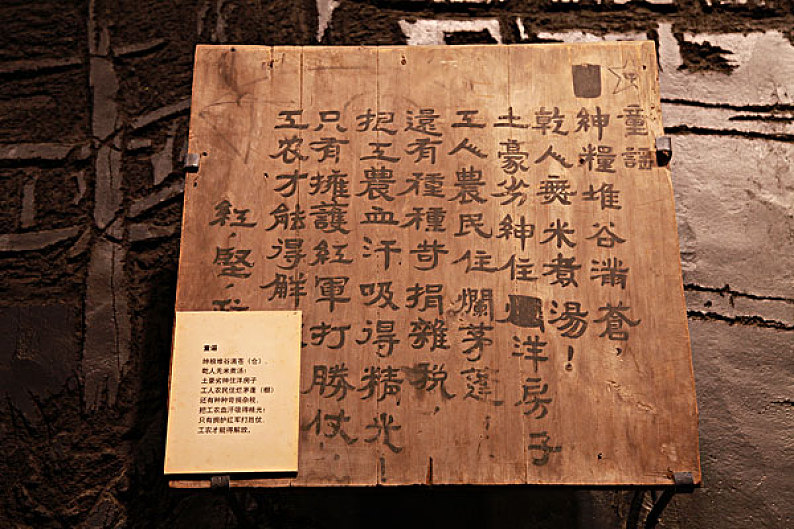 童謡
紳糧堆谷滿蒼，
乾人無米煮湯！
土豪劣紳住洋房子
工人農民住爛茅蓬
還有種種苛捐雜税，
把工農血汗吸得精光！
只有擁護紅軍打勝仗
工农才能得觧
紅.堅.
童谣
绅粮堆谷满苍（仓），
乾人无米煮汤！
土豪劣绅住洋房子
工人农民住烂茅蓬（棚）
还有种种苛捐杂税，
把工农血汗吸得精光！
只有拥护红军打胜仗，
工农才能得解放。